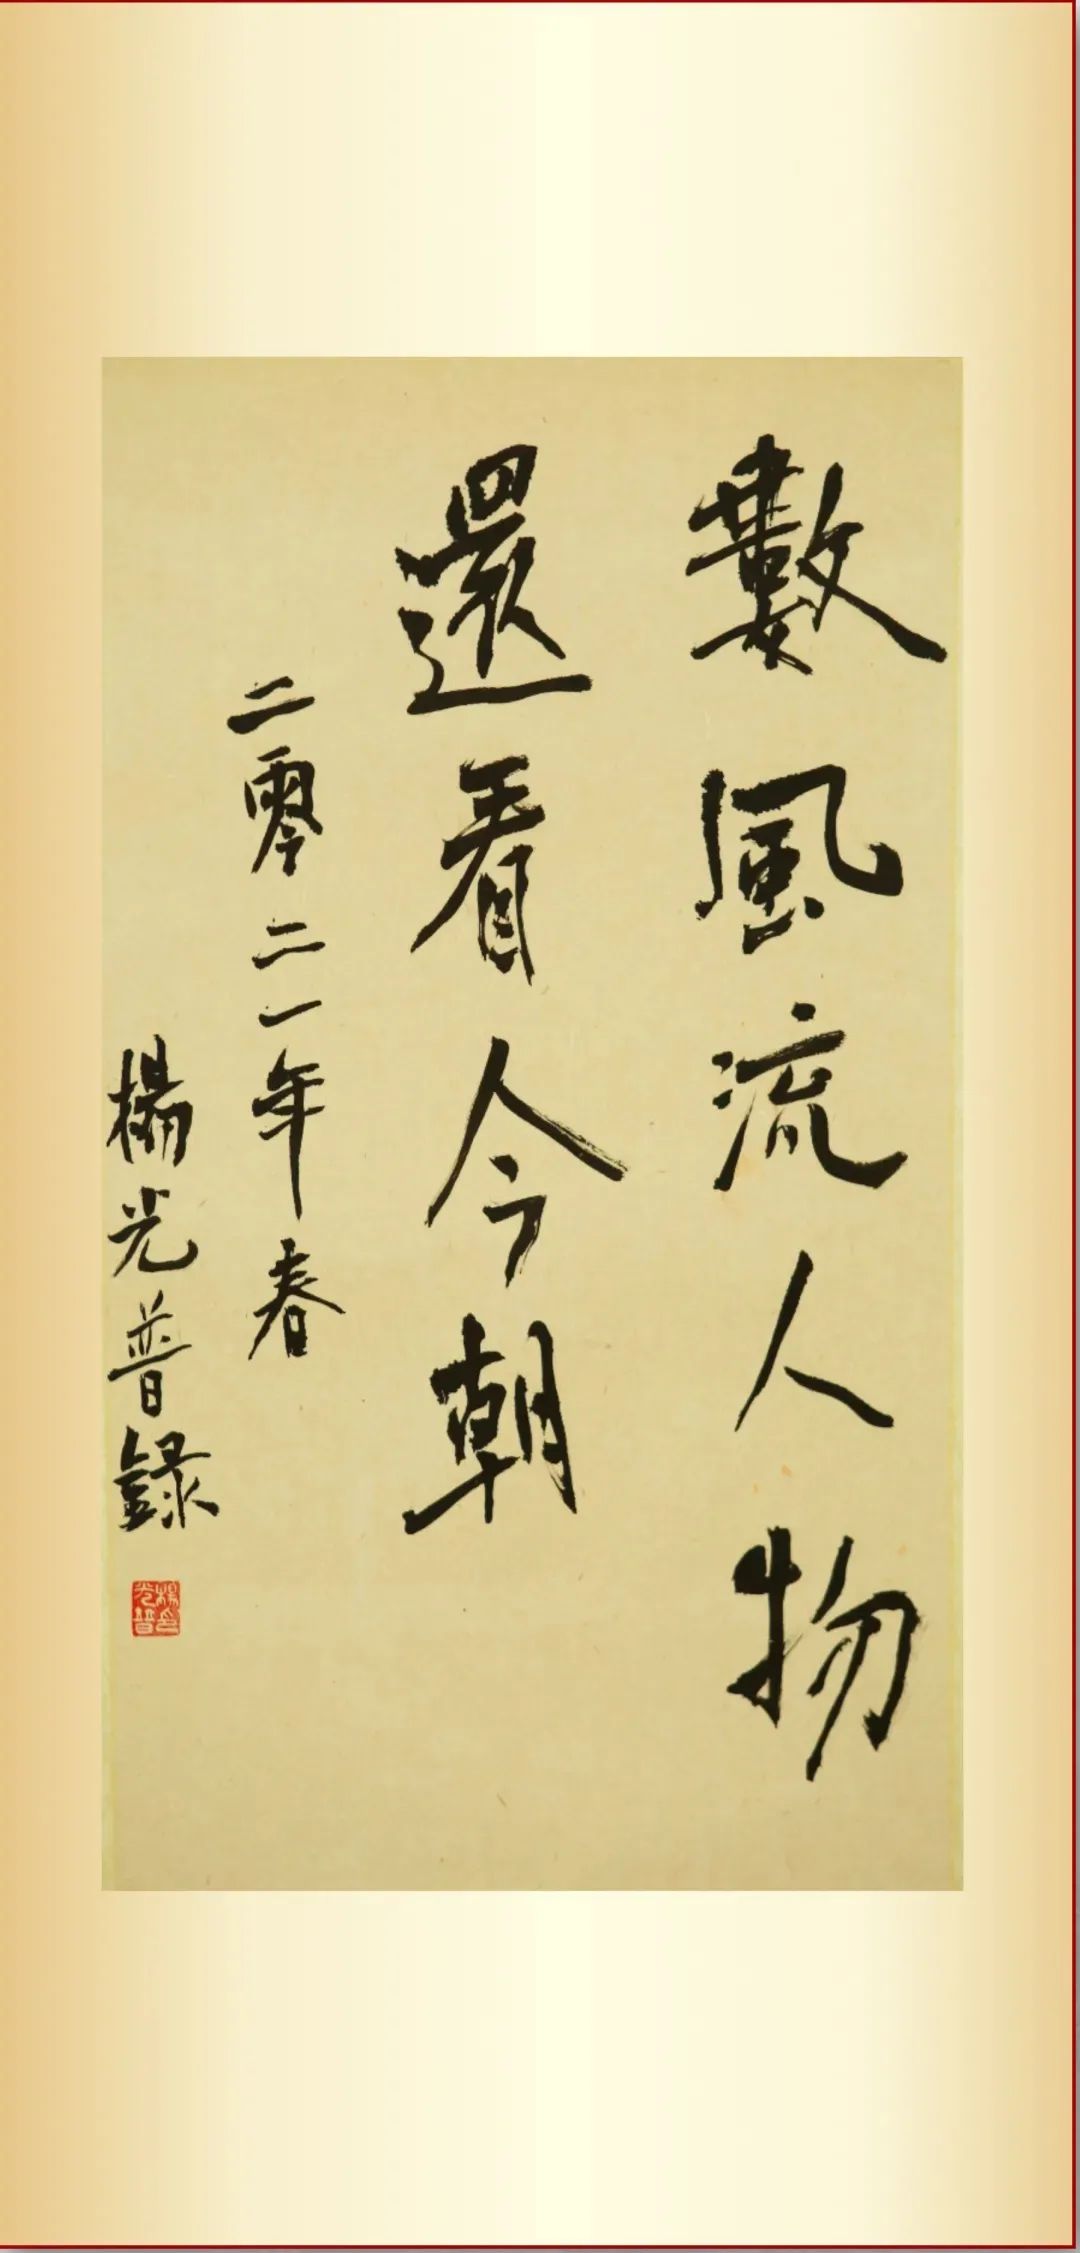 數風流人物
還看今朝
二零二一年春
楊光普錄
楊光普印